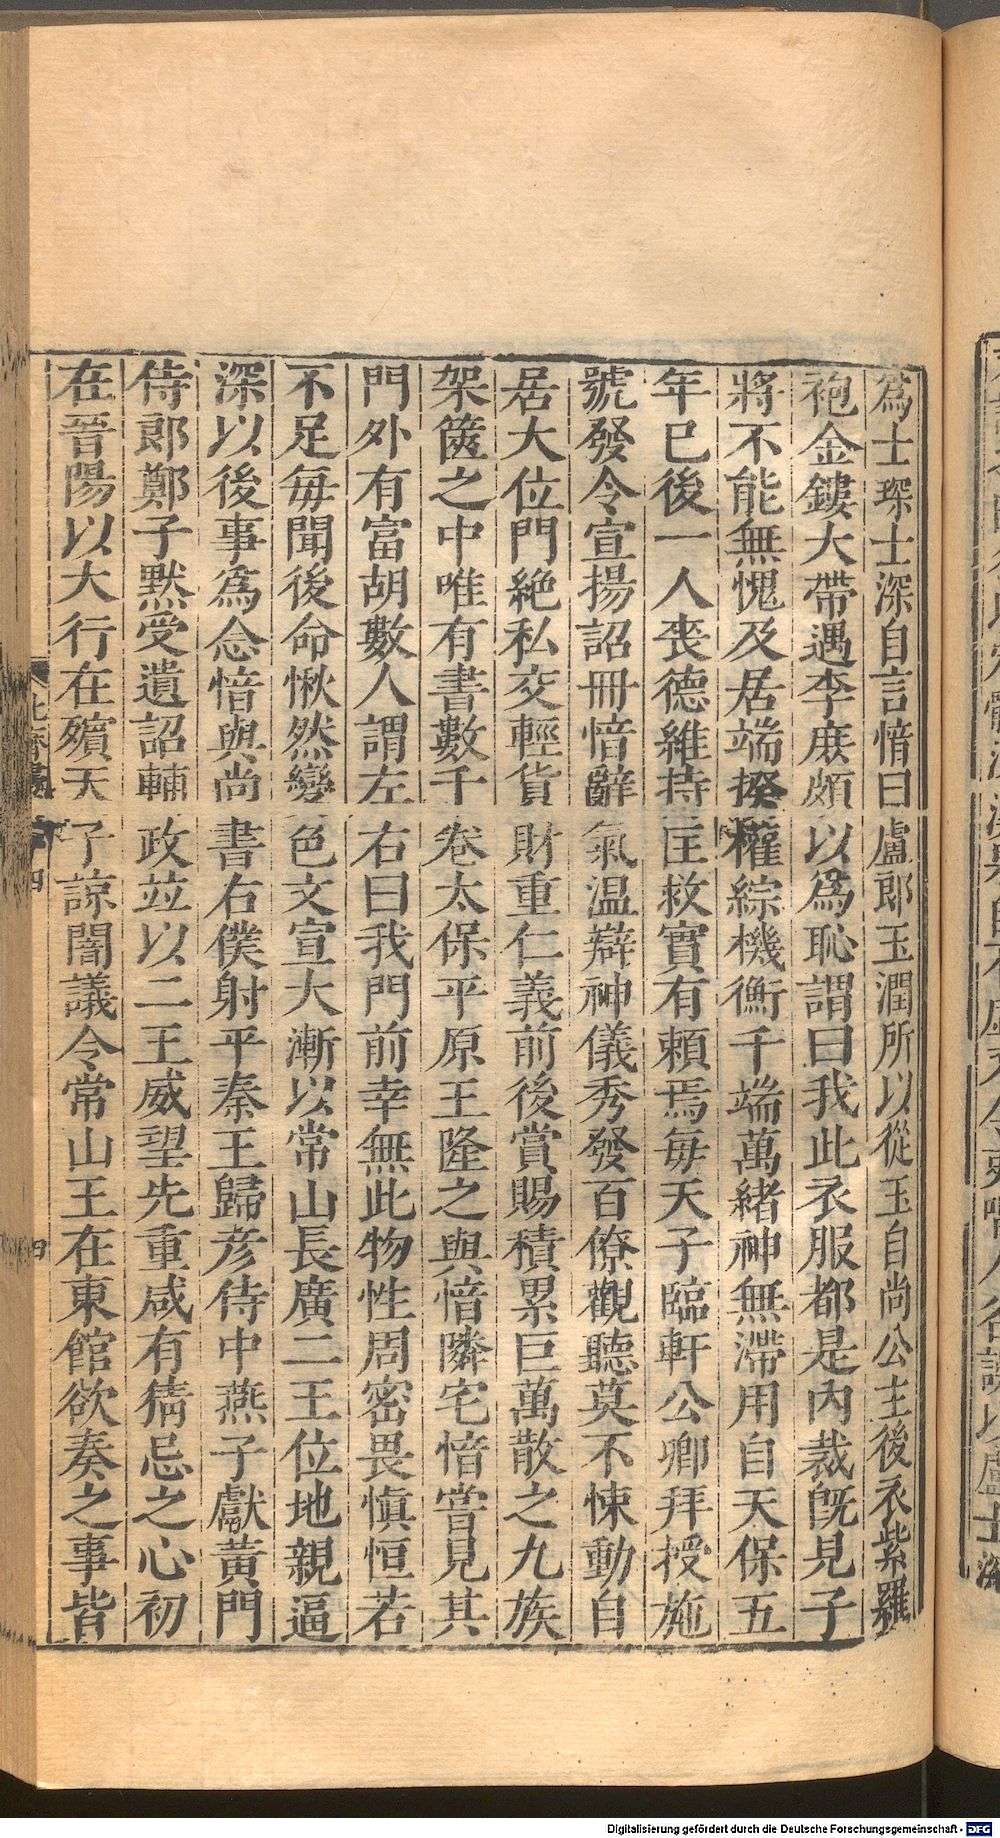 爲士琛士深自言愔曰盧郎玉潤所以從玉自尚公主後衣紫羅
袍金鏤大帶遇李庶頗以爲恥謂曰我此衣服都是內裁旣見子
將不能無愧及居端揆權綜機衡千端萬緒神無滯用自天保五
年已後一人喪德維持匡救實有賴焉每天子臨軒公卿拜授施
號發令宣揚詔冊愔辭氣温辯神儀秀發百僚觀聽莫不悚動自
居大位門絶私交輕貨財重仁義前後賞賜積累巨萬散之九族
架篋之中唯有書數千卷太保平原王隆之與愔隣宅愔嘗見其
門外有富胡數人謂左右曰我門前幸無此物性周密畏愼恒若
不足每聞後命愀然變色文宣大漸以常山長廣二王位地親逼
深以後事爲念愔與尚書右僕射平秦王歸彦侍中燕子獻黄門
侍郎鄭子黙受遺詔輔政並以二王威望先重咸有猜忌之心初
在晉陽以大行在殯天子諒闇議令常山王在東館欲奏之事皆
北齊書 四
Digitalisierung gefördert durch die Deutsche Forschungsgemeinschaft - DFG